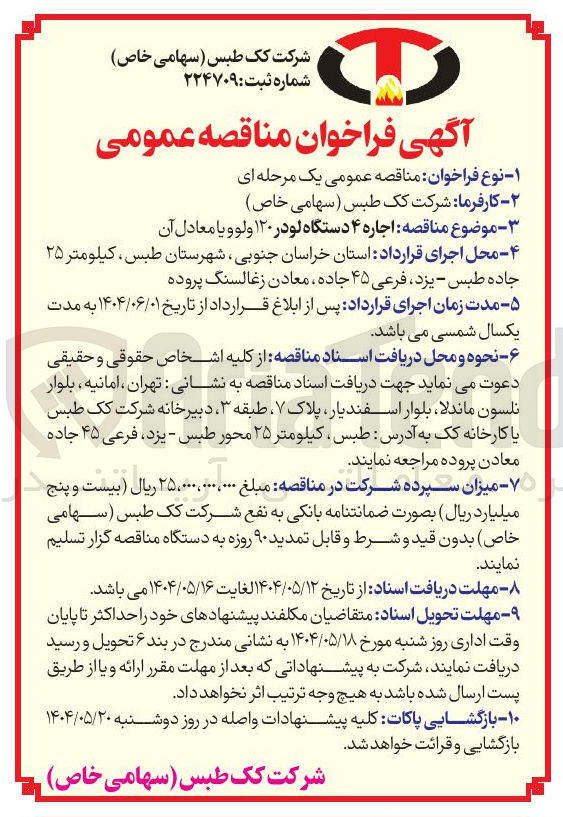 شرکت کک طبس (سهامی خاص)
شماره ثبت: ۲۲۴۷۰۹
آگهی فراخوان مناقصه عمومی
۱-نوع فراخوان: مناقصه عمومی یک مرحله ای
۲-کارفرما: شرکت کک طبس (سهامی خاص)
۳-موضوع مناقصه: اجاره ۴ دستگاه لودر ۱۲۰ ولوو یا معادل آن
۴-محل اجرای قرارداد: استان خراسان جنوبی، شهرستان طبس، کیلومتر ۲۵
جاده طبس - یزد، فرعی ۴۵ جاده، معادن زغالسنگ پروده
۵-مدت زمان اجرای قرارداد: پس از ابلاغ قرارداد از تاریخ ۱۴۰۴/۰۶/۰۱ به مدت
یکسال شمسی می باشد.
۶-نحوه و محل دریافت اسناد مناقصه: از کلیه اشخاص حقوقی و حقیقی
دعوت می نماید جهت دریافت اسناد مناقصه به نشانی: تهران، امانیه، بلوار
نلسون ماندلا، بلوار اسفندیار، پلاک ۷، طبقه ۳، دبیرخانه شرکت کک طبس
یا کارخانه کک به آدرس: طبس، کیلومتر ۲۵ محور طبس - یزد، فرعی ۴۵ جاده
معادن پروده مراجعه نمایند.
۷-میزان سپرده شرکت در مناقصه: مبلغ ۲۵,۰۰۰,۰۰۰,۰۰۰ ریال (بیست و پنج
میلیارد ریال) بصورت ضمانتنامه بانکی به نفع شرکت کک طبس (سهامی
خاص) بدون قید و شرط و قابل تمدید ۹۰ روزه به دستگاه مناقصه گزار تسلیم
نمایند.
۸-مهلت دریافت اسناد: از تاریخ ۱۴۰۴/۰۵/۱۲ لغایت ۱۴۰۴/۰۵/۱۶ می باشد.
۹-مهلت تحویل اسناد: متقاضیان مکلفند پیشنهادهای خود را حداکثر تا پایان
وقت اداری روز شنبه مورخ ۱۴۰۴/۰۵/۱۸ به نشانی مندرج در بند ۶ تحویل و رسید
دریافت نمایند، شرکت به پیشنهاداتی که بعد از مهلت مقرر ارائه و یا از طریق
پست ارسال شده باشد به هیچ وجه ترتیب اثر نخواهد داد.
۱۰-بازگشایی پاکات: کلیه پیشنهادات واصله در روز دوشنبه ۱۴۰۴/۰۵/۲۰
بازگشایی و قرائت خواهد شد.
شرکت کک طبس (سهامی خاص)